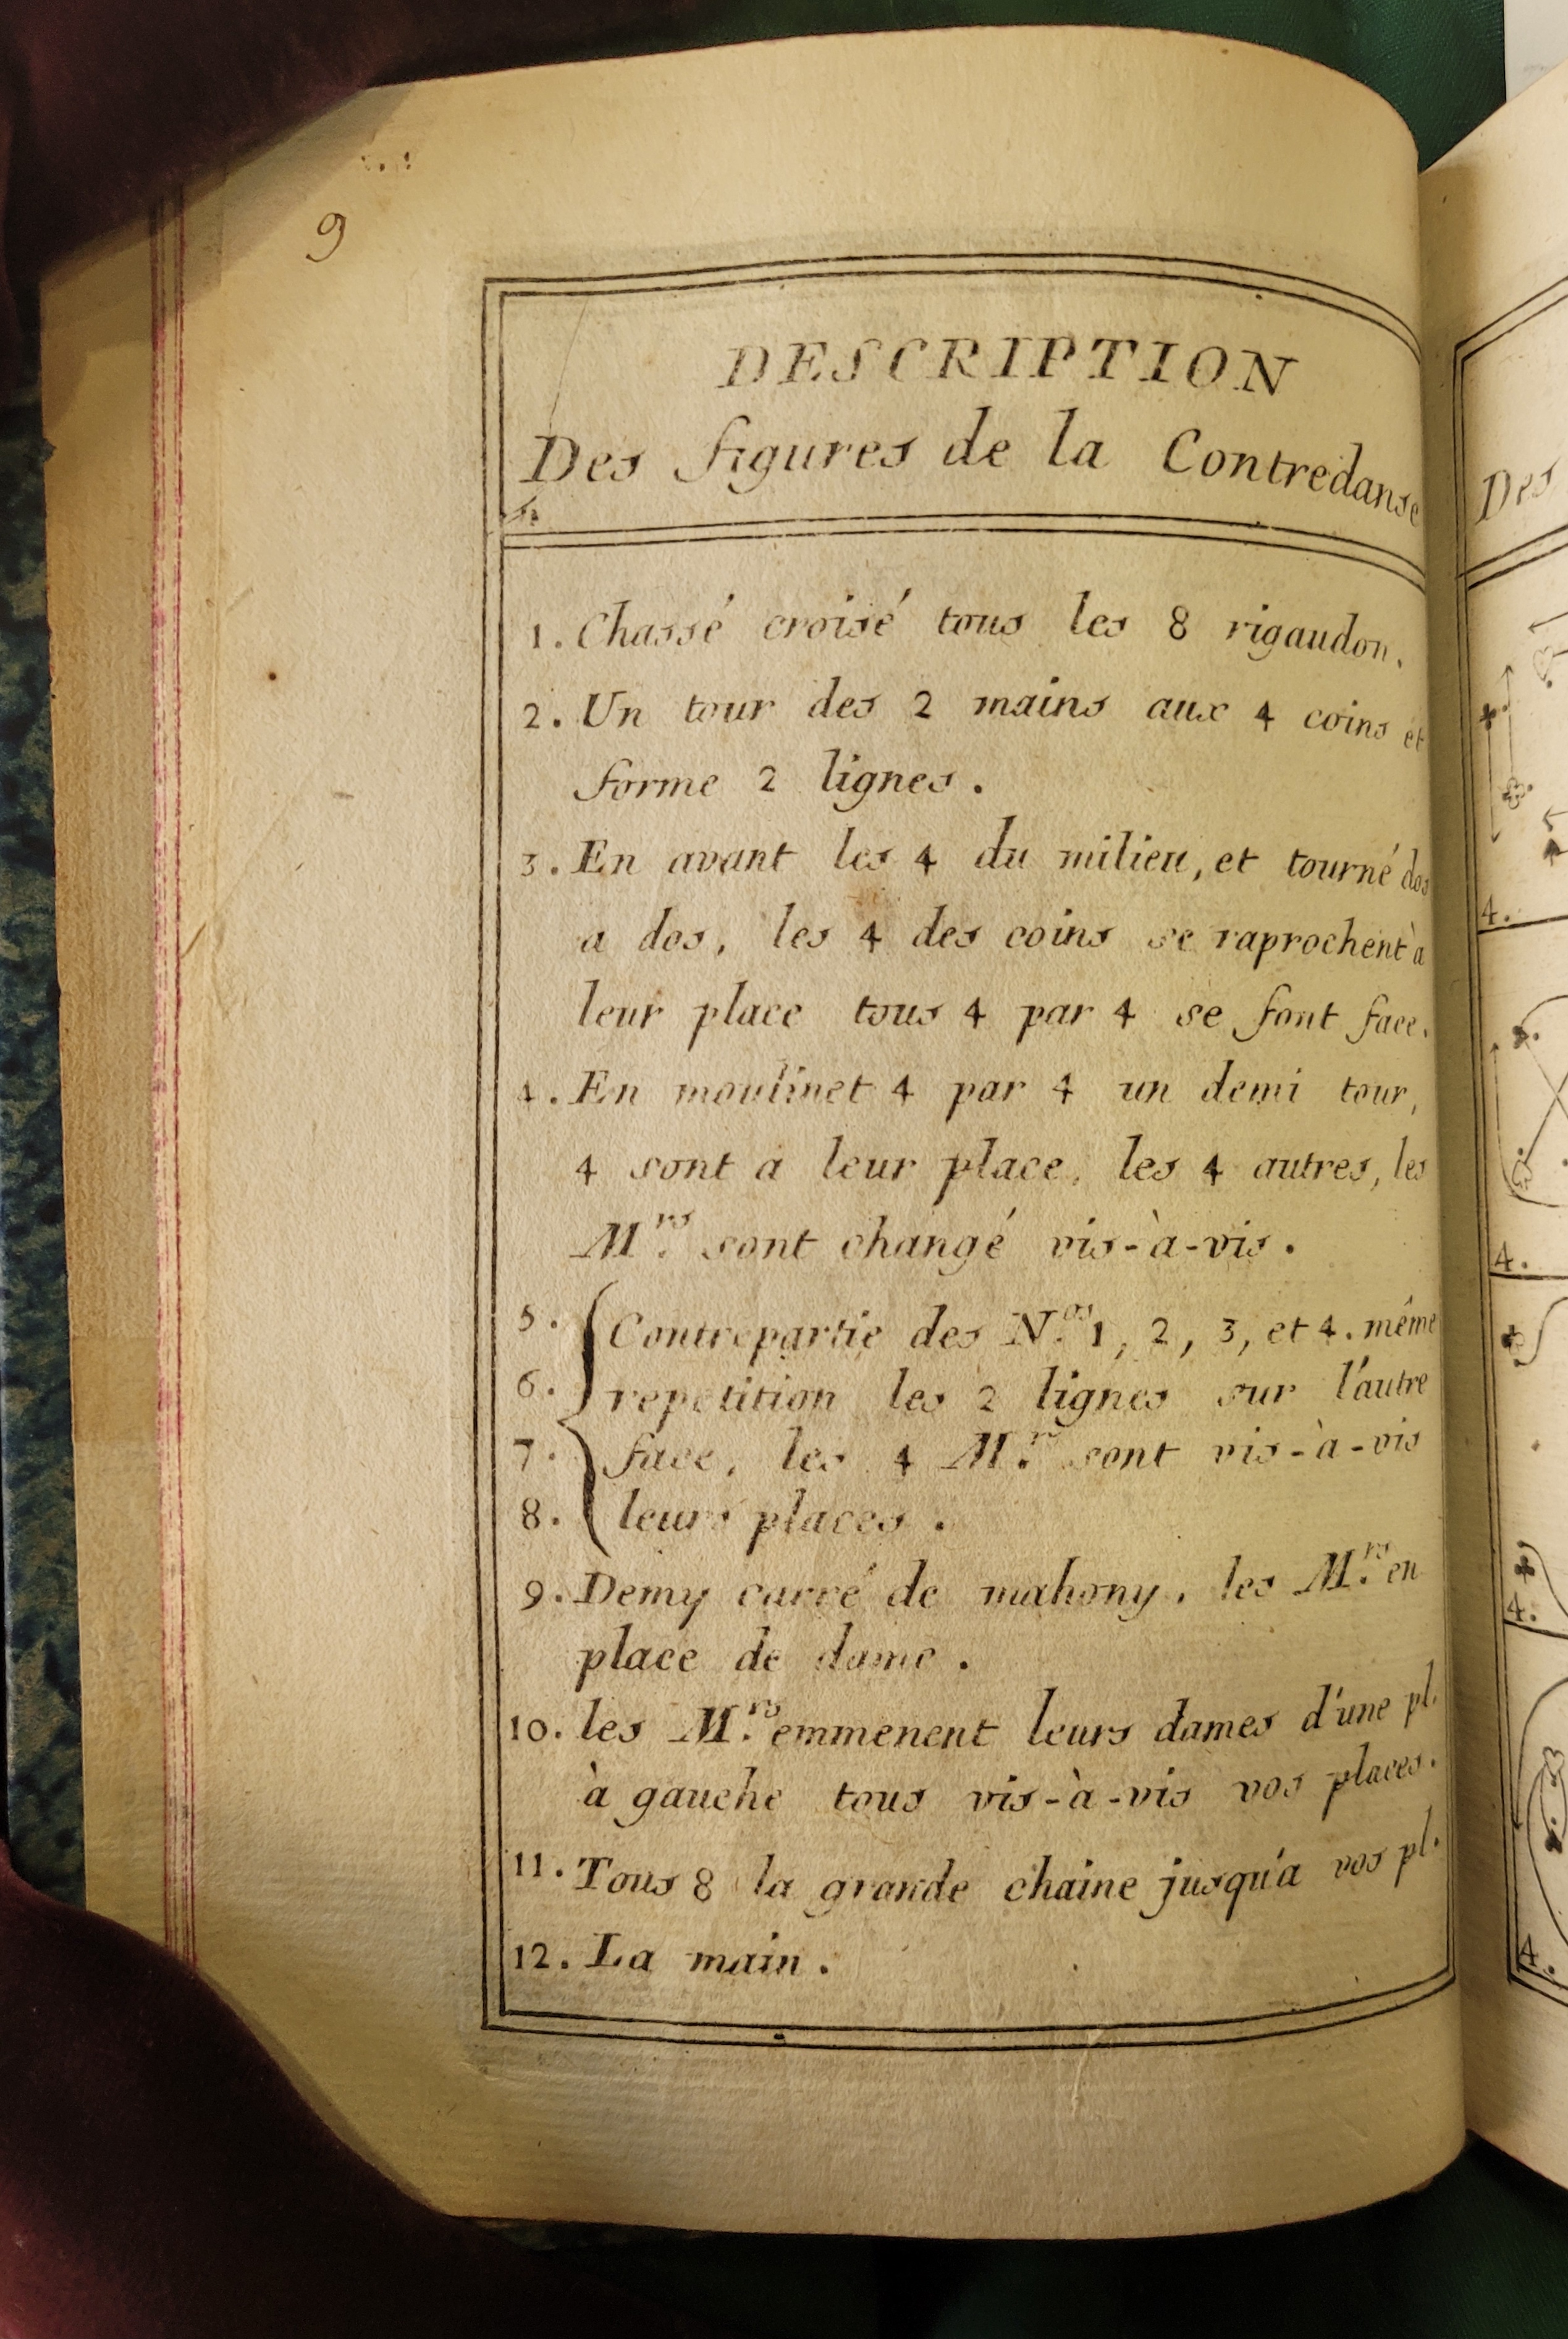 9
DESCRIPTION
Des figures de la Contredanse
1. Chassé croisé tous les 8 rigaudon.
2. Un tour des 2 mains aux 4 coins et
forme 2 lignes.
3. En avant les 4 du milieu, et tourné dos
a dos, les 4 des coins se raprochent à
leur place tous 4 par 4 se font face.
4. En moulinet 4 par 4 un demi tour,
4 sont a leur place, les 4 autres, les
M.rs sont changé vis-à-vis.
5. Contrepartie des N.os 1, 2, 3, et 4. même
6. repetition les 2 lignes sur l'autre
7. face, les 4 M.rs sont vis-à-vis
8. leurs places.
9. Demy carré de mahony. les M.rs en
place de dame.
10. les M.rs emmenent leurs dames d'une pl.
à gauche tous vis-à-vis vos places.
11. Tous 8 la grande chaine jusqu'a vos pl.
12. La main.
Des
4.
4.
4.
4.